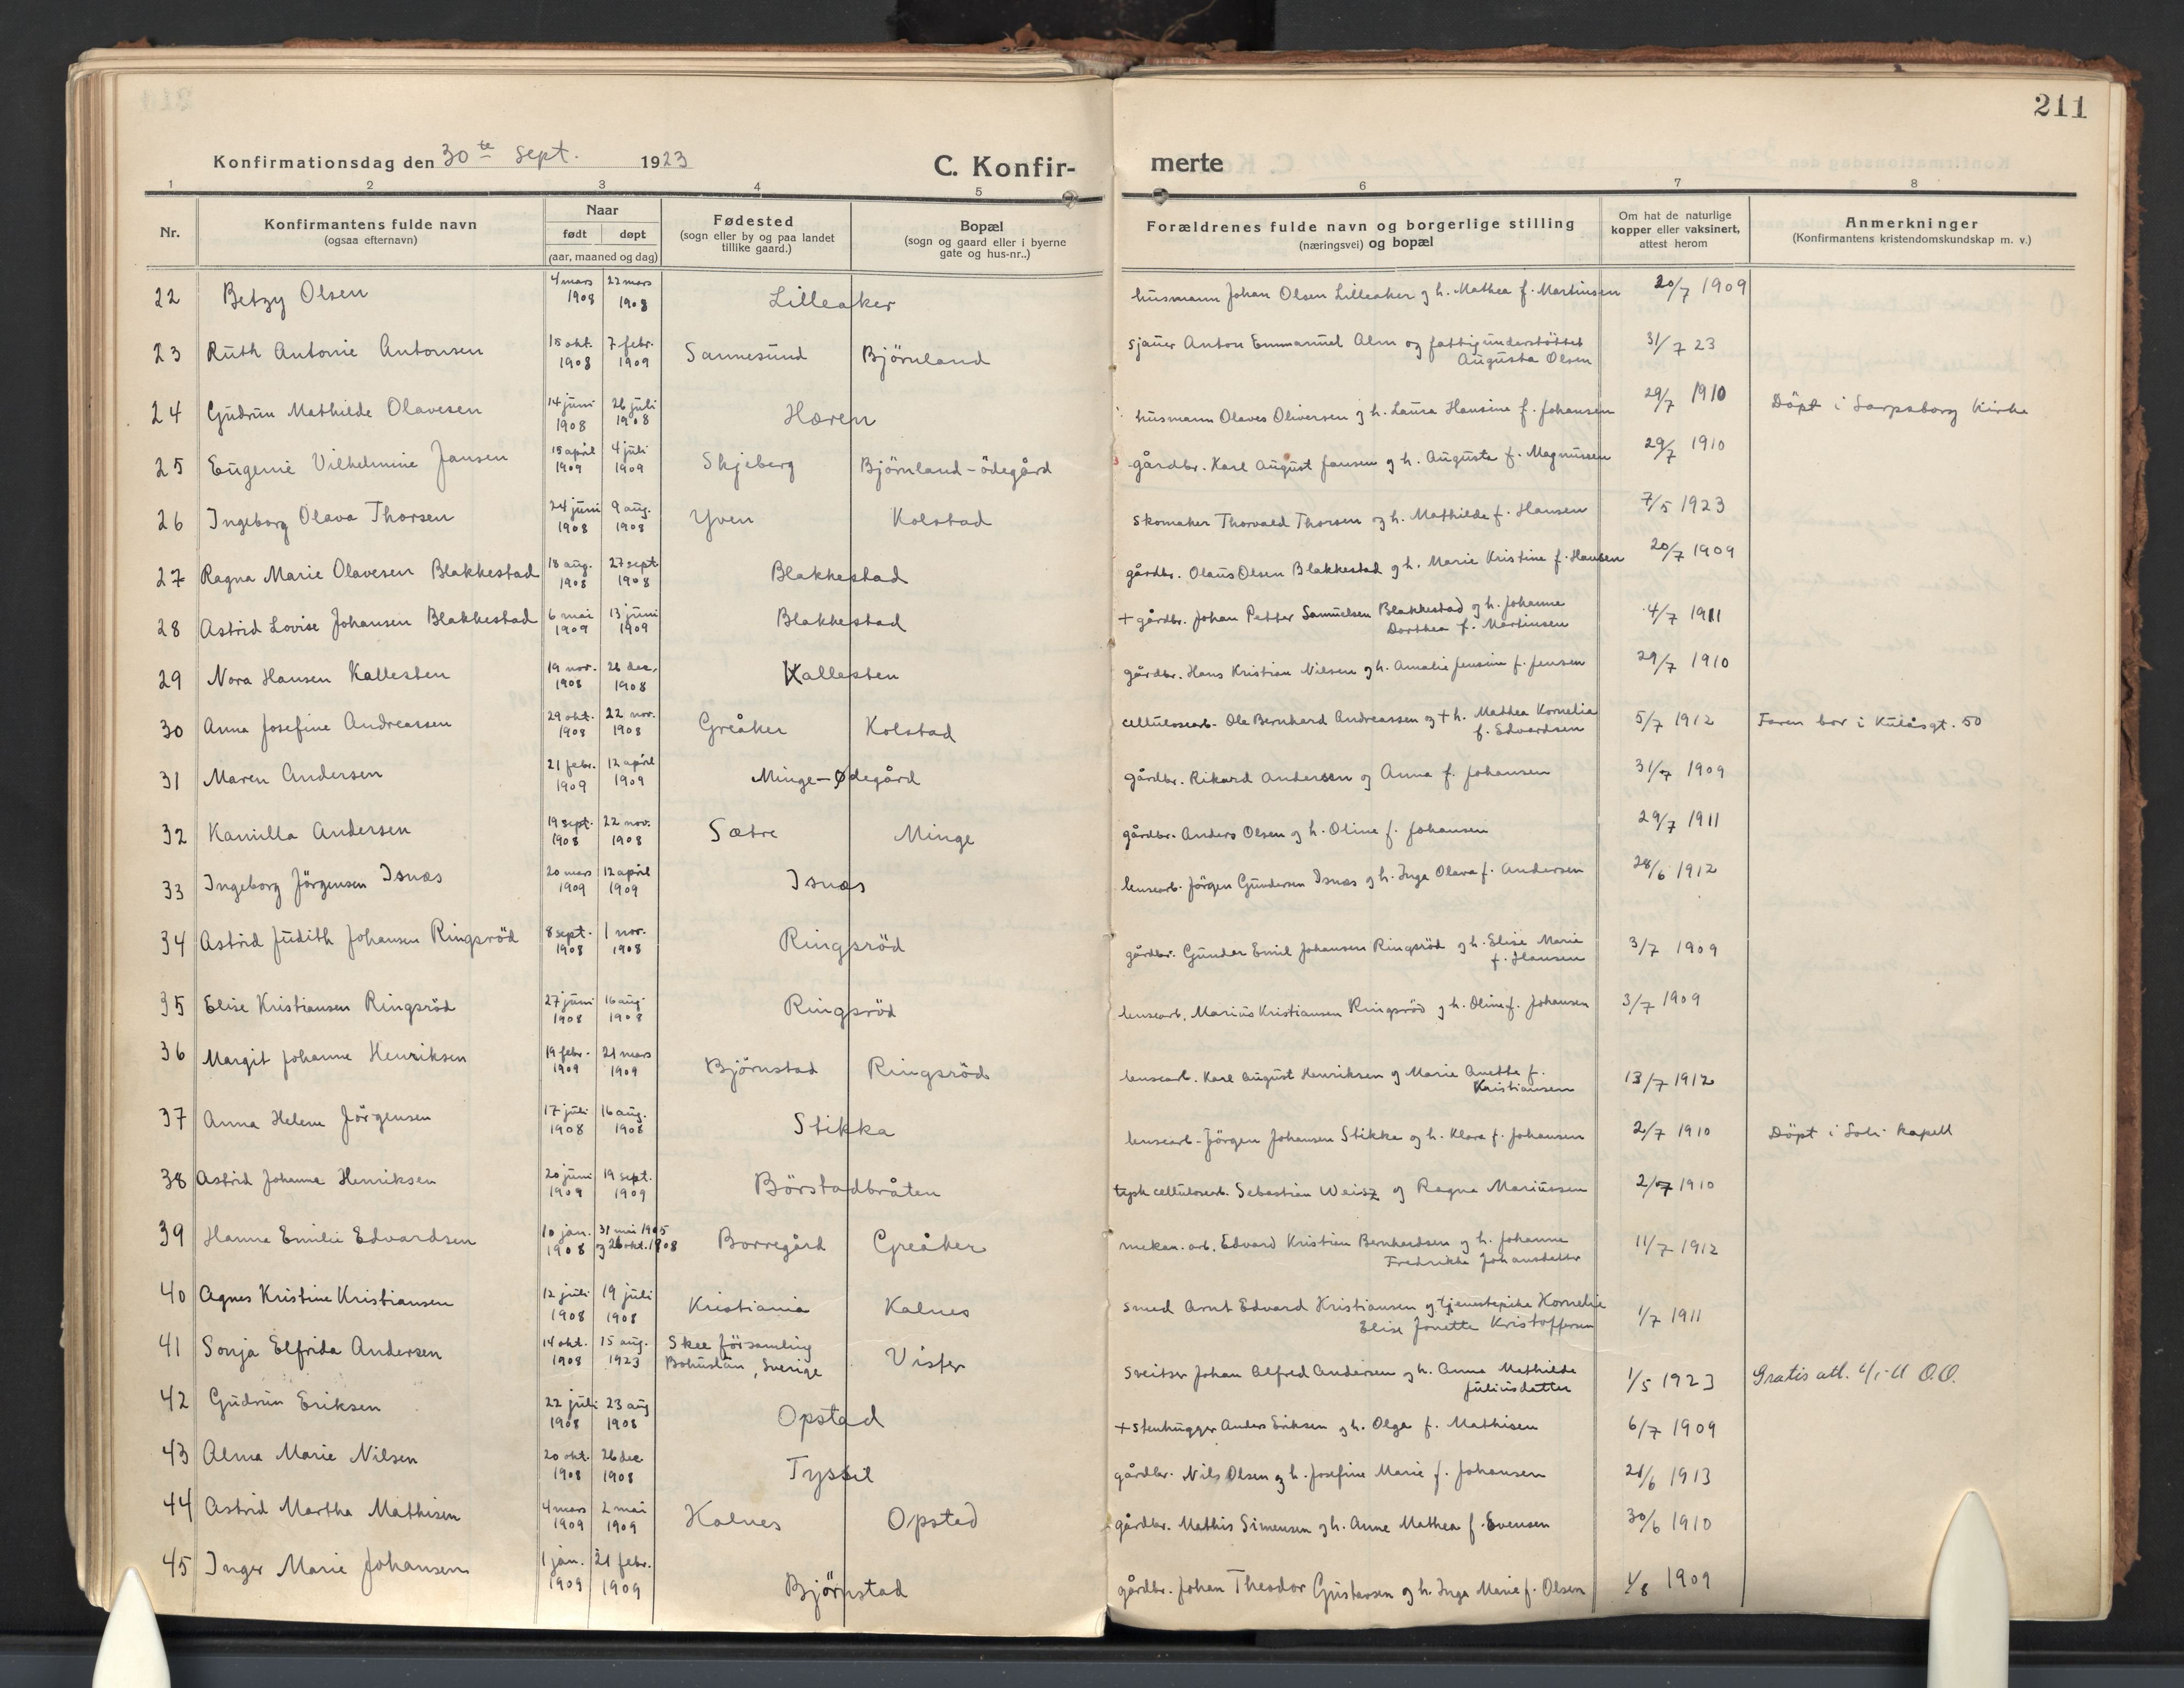 211
Konfirmationsdag den 30te sept. 1923
C. Konfir-
merte
1 2 3 4 5 6 7 8
Nr.
Konfirmantens fulde navn
(ogsaa efternavn)
Naar
født døpt
(aar, maaned og dag)
Fødested
(sogn eller by og paa landet
tillike gaard.)
Bopæl
(sogn og gaard eller i byerne
gate og hus-nr..)
Forældrenes fulde navn og borgerlige stilling
(næringsvei) og bopæl
Om hat de naturlige
kopper eller vaksinert,
attest herom
Anmerkninger
(Konfirmantens kristendomskundskap m. v.)
22 Betzy Olsen 4 mars 1908 22 mars 1908 Lilleaker husmann Johan Olsen Lilleaker og h. Mathea f. Martinsen 20/7 1909
23 Ruth Antonie Antonsen 15 okt. 1908 7 febr. 1909 Sannesund Björnland sjauer Anton Emmanuel Alm og fattigunderstöttet
Augusta Olsen 31/7 23
24 Gudrun Mathilde Olavesen 14 juni 1908 26 juli 1908 Haren husmann Olaves Oliversen og h. Laura Hansine f. Johansen 29/7 1910 Döpt i Sarpsborg kirke
25 Eugenie Vilhelmine Jansen 15 april 1909 4 juli 1909 Skjeberg Björnland-ödegård gårdbr. Karl August Jansen og h. Auguste f. Magnussen 29/7 1910
26 Ingeborg Olava Thorsen 24 juni 1908 9 aug. 1908 Yven Kolstad skomaker Thorvald Thorsen og h. Mathilde f. Hansen 7/5 1923
27 Ragna Marie Olavesen Blakkestad 18 aug. 1908 27 sept. 1908 Blakkestad gårdbr. Olaus Olsen Blakkestad og h. Marie Kristine f. Hansen 20/7 1909
28 Astrid Lovise Johansen Blakkestad 6 mai 1909 13 juni 1909 Blakkestad + gårdbr. Johan Petter Samuelsen Blakkestad og h. Johanne
Dorthea f. Martinsen 4/7 1911
29 Nora Hansen Kallesten 19 nov. 1908 26 des. 1908 Kallesten gårdbr. Hans Kristian Nilsen og h. Amalie Jensine f. Jensen 29/7 1910
30 Anna Josefine Andreassen 29 okt. 1908 22 nov. 1908 Greåker Kolstad cellulosearb. Ole Bernhard Andreassen og + h. Mathea Kornelia
f. Edvardsen 5/7 1912 Faren bor i Kulåsgt. 50
31 Maren Andersen 21 febr. 1909 12 april 1909 Minge-Ødegård gårdbr. Rikard Andersen og Anna f. Johansen 31/7 1909
32 Kamilla Andersen 19 sept. 1908 22 nov. 1908 Sætre Minge gårdbr. Anders Olsen og h. Oline f. Johansen 29/7 1911
33 Ingeborg Jörgensen Isnæs 20 mars 1909 12 april 1909 Isnæs lensearb. Jörgen Gundersen Isnæs og h. Inga Olava f. Andersen 28/6 1912
34 Astrid Judith Johansen Ringsröd 8 sept. 1908 1 nov. 1908 Ringsröd gårdbr. Gunder Emil Johansen Ringsröd og h. Elise Marie
f. Hansen 3/7 1909
35 Elise Kristiansen Ringsröd 27 juni 1908 16 aug. 1908 Ringsröd lensearb. Marius Kristiansen Ringsröd og h. Oline f. Johansen 3/7 1909
36 Margit Johanne Henriksen 19 febr. 1909 21 mars 1909 Björnstad Ringsröd lensearb. Karl August Henriksen og Marie Anette f.
Kristiansen 13/7 1912
37 Anna Helene Jörgensen 17 juli 1908 16 aug. 1908 Stikka lensearb. Jörgen Johansen Stikka og h. Klara f. Johansen 2/7 1910 Döpt i Soli kapell
38 Astrid Johanne Henriksen 20 juni 1909 19 sept. 1909 Börstadbråten tysk cellulosearb. Sebastian Weisz og Ragna Mariussen 2/7 1910
39 Hanna Emilie Edvardsen 10 jan. 1908 31 mai 1905 og 26 okt. 1908 Borregård Greåker mekan. arb. Edvard Kristian Bernhardsen og h. Johanne
Fredrikke Johansdatter 11/7 1912
40 Agnes Kristine Kristiansen 12 juli 1908 19 juli 1908 Kristiania Kalnes smed Arnt Edvard Kristiansen og tjenestepike Kornelie
Elise Jonette Kristoffersen 1/7 1911
41 Sonja Elfrida Andersen 14 okt. 1908 15 aug. 1923 Skee församling
Bohuslän, Sverige Vister sveitser Johan Alfred Andersen og h. Anna Mathilde
Juliusdatter 1/5 1923 Gratis att. O.O.
42 Gudrun Eriksen 22 juli 1908 23 aug 1908 Opstad + stenhugger Anders Eriksen og h. Olga f. Mathisen 6/7 1909
43 Alma Marie Nilsen 20 okt. 1908 26 des. 1908 Tyssil gårdbr. Nils Olsen og h. Josefine Marie f. Johansen 21/6 1913
44 Astrid Martha Mathisen 4 mars 1909 2 mai 1909 Kalnes Opstad gårdbr. Mathis Simensen og h. Anne Mathea f. Evensen 30/6 1910
45 Inger Marie Johansen 1 jan. 1909 21 febr. 1909 Björnstad gårdbr. Johan Theodor Gustavsen og h. Inga Marie f. Olsen 1/8 1909